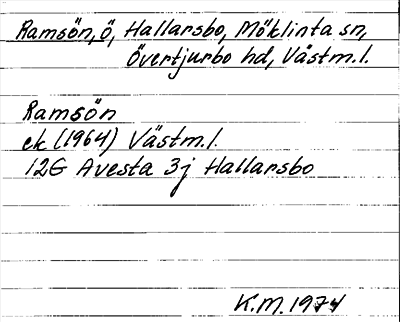 Ramsön, ö, Hallarsbo, Möklinta sn,
Övertjurbo hd, Västm.l.
Ramsön
ek (1964) Västm.l.
12G Avesta 3j Hallarsbo
K.M. 1974